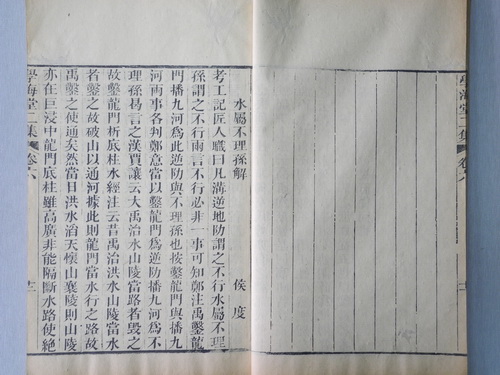 水屬不理孫解
侯度
考工記匠人職曰凡溝逆地阞謂之不行水屬不理
孫謂之不行兩言不行必非一事可知鄭注禹鑿龍
門播九河為此逆阞與不理孫也按鑿龍門與播九
河兩事各判鄭意當以鑿龍門為逆阞播九河為不
理孫昜言之漢賈讓云大禹治水山陵當路者毀之
故鑿龍門析底柱水經注云昔禹治洪水山陵當水
者鑿之故破山以通河據此則龍門當水行之路故
禹鑿之使通矣然當日洪水滔天懷山襄陵則山陵
亦在巨浸中龍門底柱雖高廣非能隔斷水路使絕
學海堂二集
卷六
十二
學海堂二集
卷六